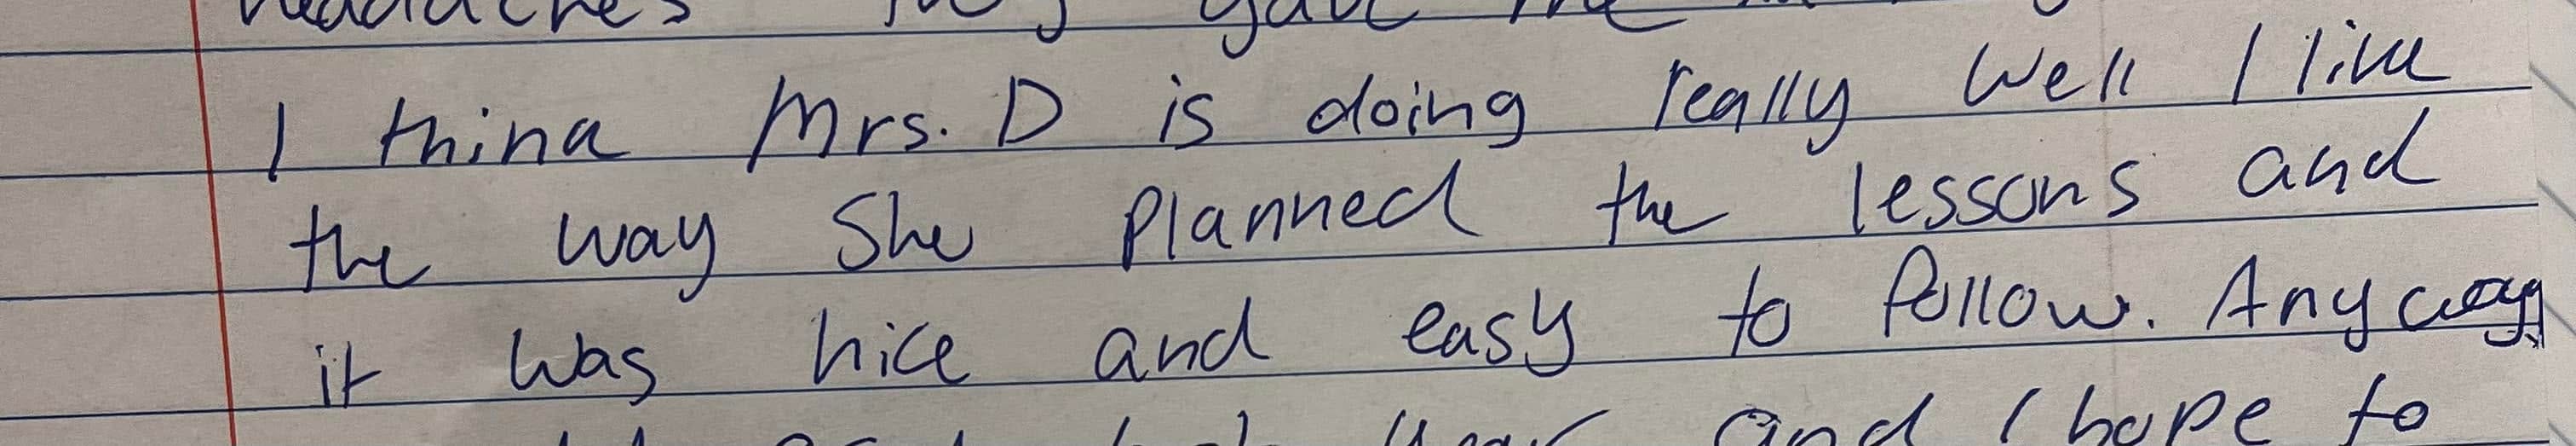 headaches they gave me
I think Mrs. D is doing really well I like
the way She planned the lessons and
it was nice and easy to follow. Anyway
and I hope to